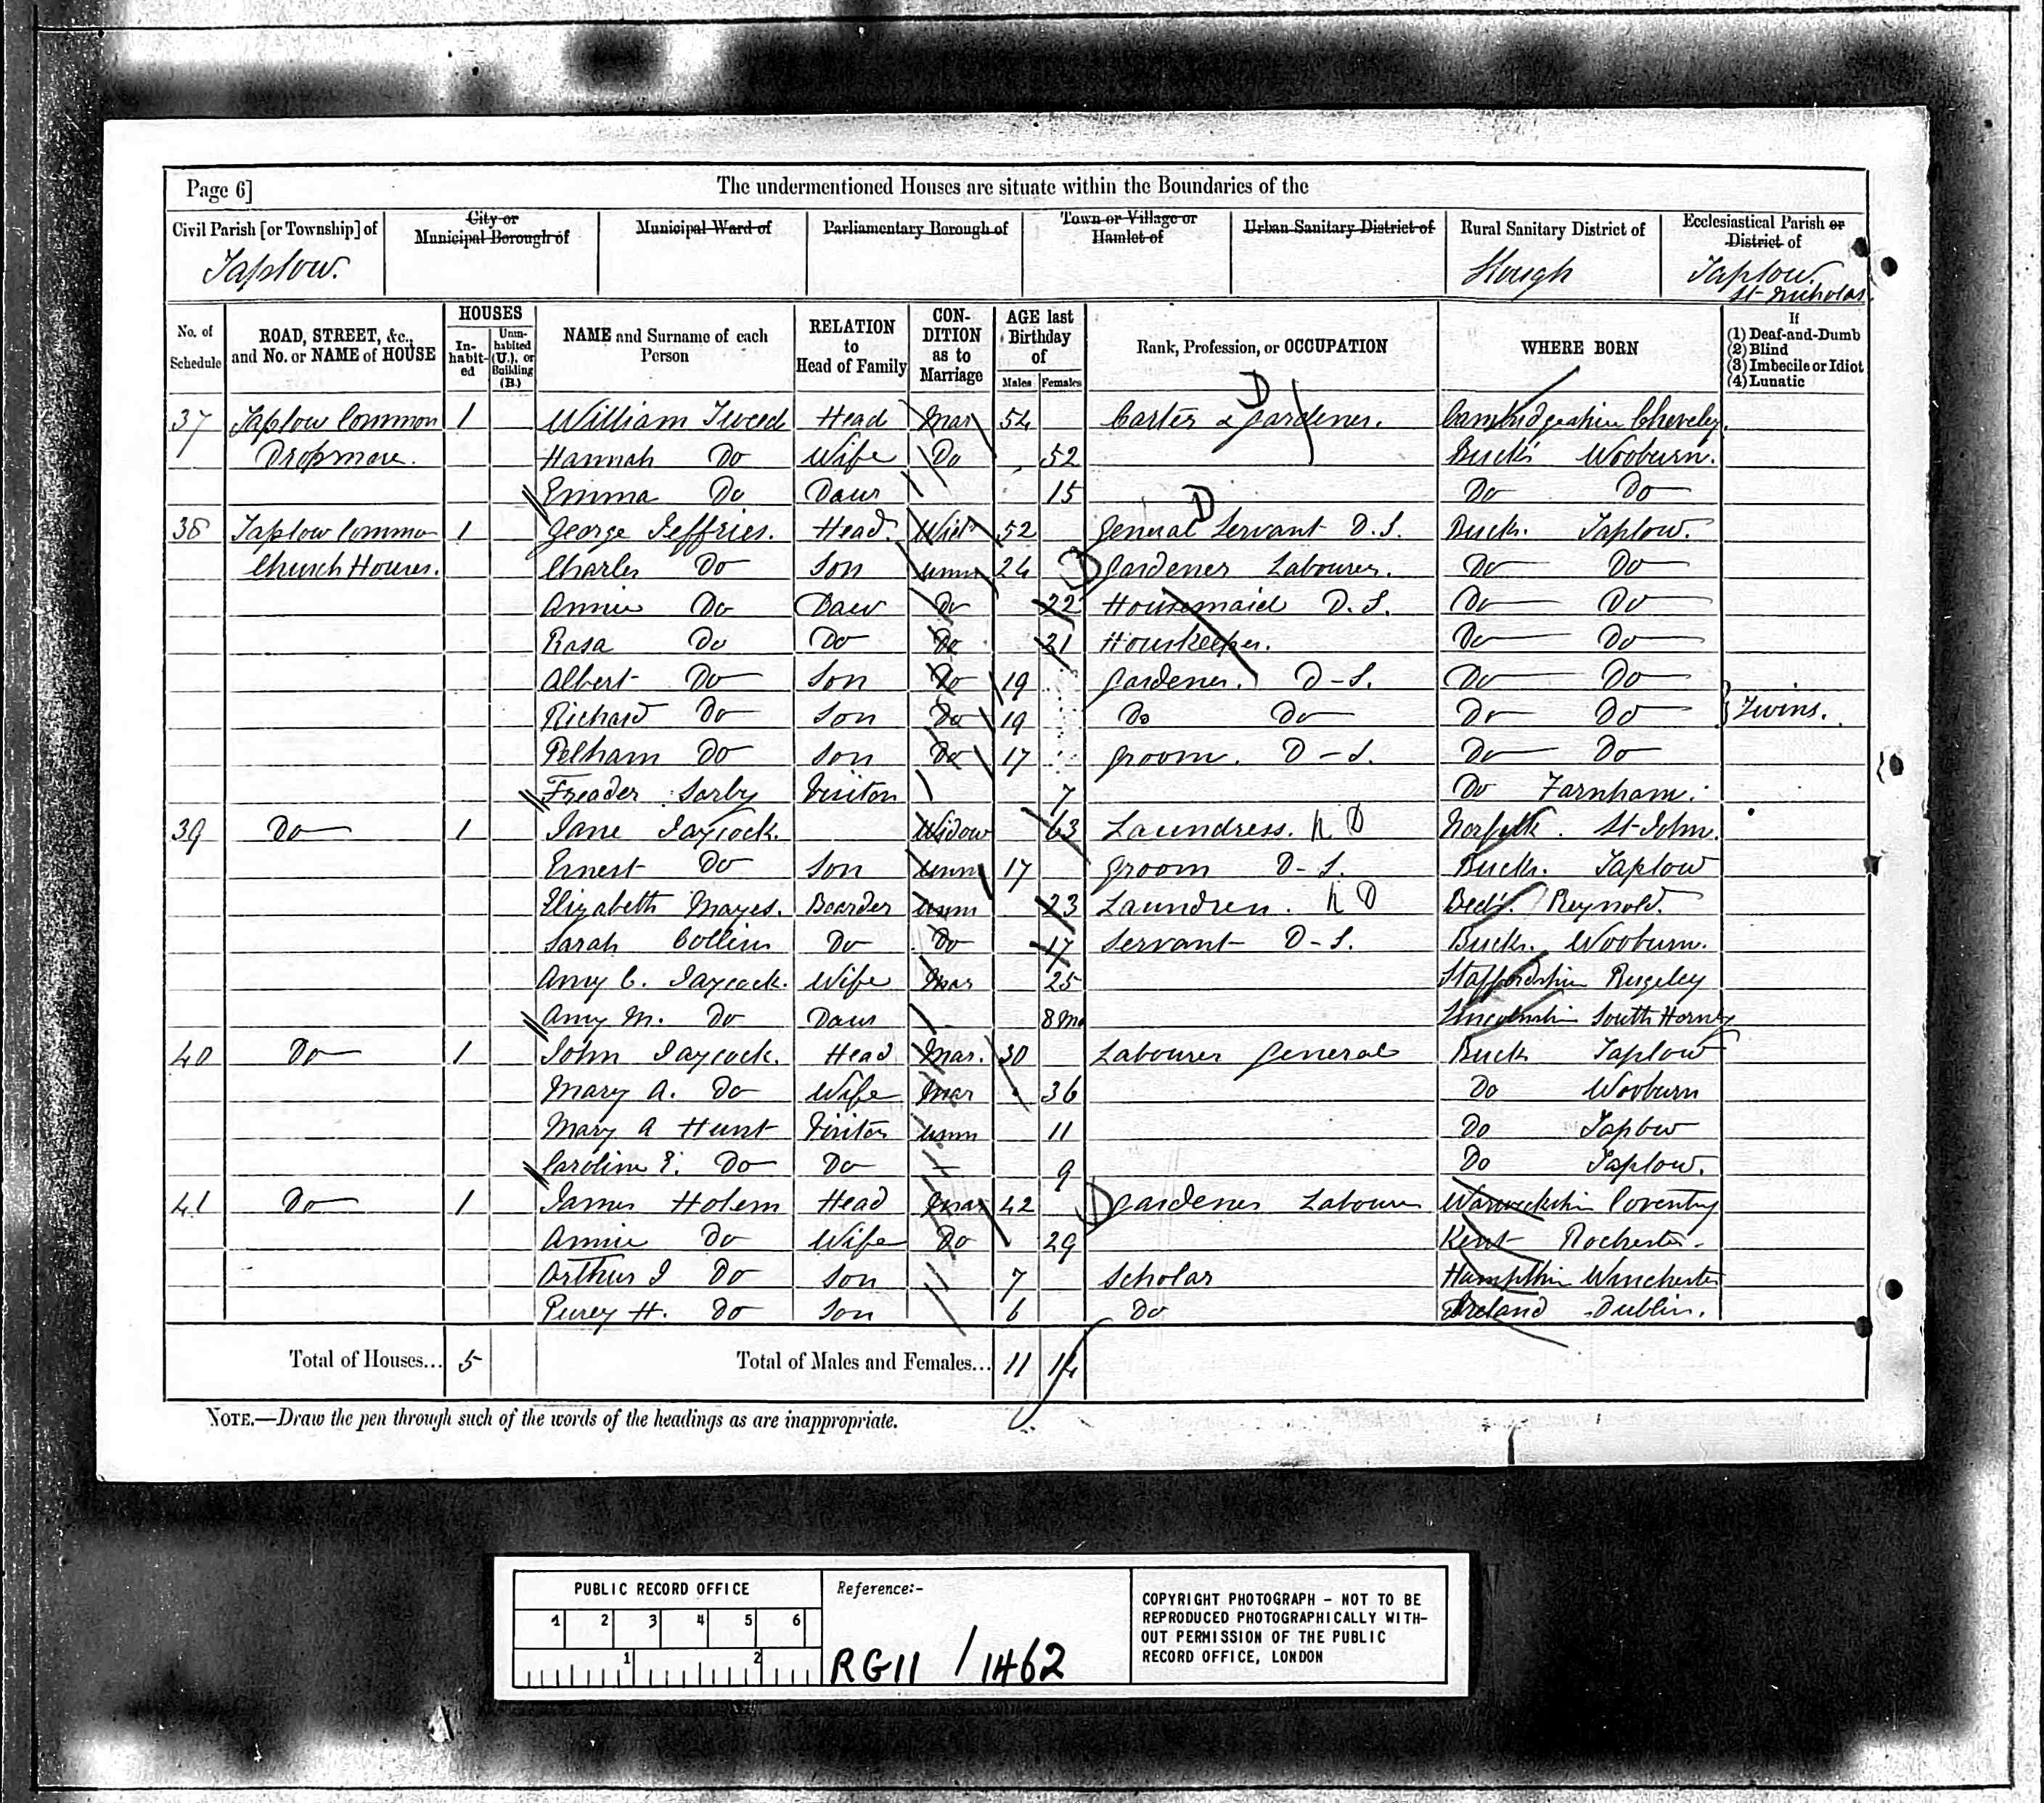 Page 6]
The undermentioned Houses are situate within the Boundaries of the
Civil Parish [or Township] of
City or Municipal Borough of
Municipal Ward of
Parliamentary Borough of
Town or Village or Hamlet of
Urban Sanitary District of
Rural Sanitary District of
Ecclesiastical Parish or District of
Taplow.
Slough
Taplow. St Nicholas.
No. of Schedule
ROAD, STREET, &c., and No. or NAME of HOUSE
HOUSES
In-habit-ed
Unin-habited (U.), or Building (B.)
NAME and Surname of each Person
RELATION to Head of Family
CON-DITION as to Marriage
AGE last Birthday of
Males
Females
Rank, Profession, or OCCUPATION
WHERE BORN
If
(1) Deaf-and-Dumb
(2) Blind
(3) Imbecile or Idiot
(4) Lunatic
37 Taplow Common 1 William Tweed Head Mar 54 Carter & Gardener. Cambridgeshire Cheveley.
Dropmore. Hannah Do Wife Do 52 Bucks Wooburn.
Emma Do Daur 15 Do Do
38 Taplow Common 1 George Jeffries. Head. Widr 52 General Servant D.S. Buck. Taplow.
Church Houses. Charles Do Son Unm 24 Gardener Labourer. Do Do
Annie Do Daur Do 22 Housemaid D.S. Do Do
Rosa Do Do Do 21 Houskeeper. Do Do
Albert Do Son Do 19 Gardener. D-S. Do Do
Richard Do Son Do 19 Do Do Do Do } Twins.
Pelham Do Son Do 17 Groom. D-S. Do Do
Sarby Visitor 7 Do Farnham.
39 Do 1 Jane Jaycock. Widow 63 Laundress. N D Norfolk. St John.
Ernest Do Son Unm 17 Groom D-S. Bucks. Taplow
Elizabeth Mayes. Boarder Unm 23 Laundress. N D Beds. Reynold.
Sarah Collins Do Do 17 Servant D-S. Bucks. Wooburn.
Amy C. Jaycock. Wife Mar 25 Staffordshire Rugeley
Amy M. Do Daur 8 Mo Lincolnshire South
40 Do 1 John Jaycock. Head Mar. 30 Labourer General Buck Taplow
Mary A. Do Wife Mar 36 Do Wooburn
Mary A Hunt Visitor Unm 11 Do Taplow
Caroline E. Do Do 9 Do Taplow.
41 Do 1 James Holem Head Mar 42 Gardener Labourer Warwickshire Coventry
Annie Do Wife Do 29 Kent Rochester.
Arthur J Do Son 7 Scholar Hampshire Winchester
Percy H. Do Son 6 Do Ireland Dublin.
Total of Houses... 5 Total of Males and Females... 11 14
NOTE.—Draw the pen through such of the words of the headings as are inappropriate.
PUBLIC RECORD OFFICE
1 2 3 4 5 6
1 2
Reference:-
RG11 / 1462
COPYRIGHT PHOTOGRAPH - NOT TO BE
REPRODUCED PHOTOGRAPHICALLY WITH-
OUT PERMISSION OF THE PUBLIC
RECORD OFFICE, LONDON